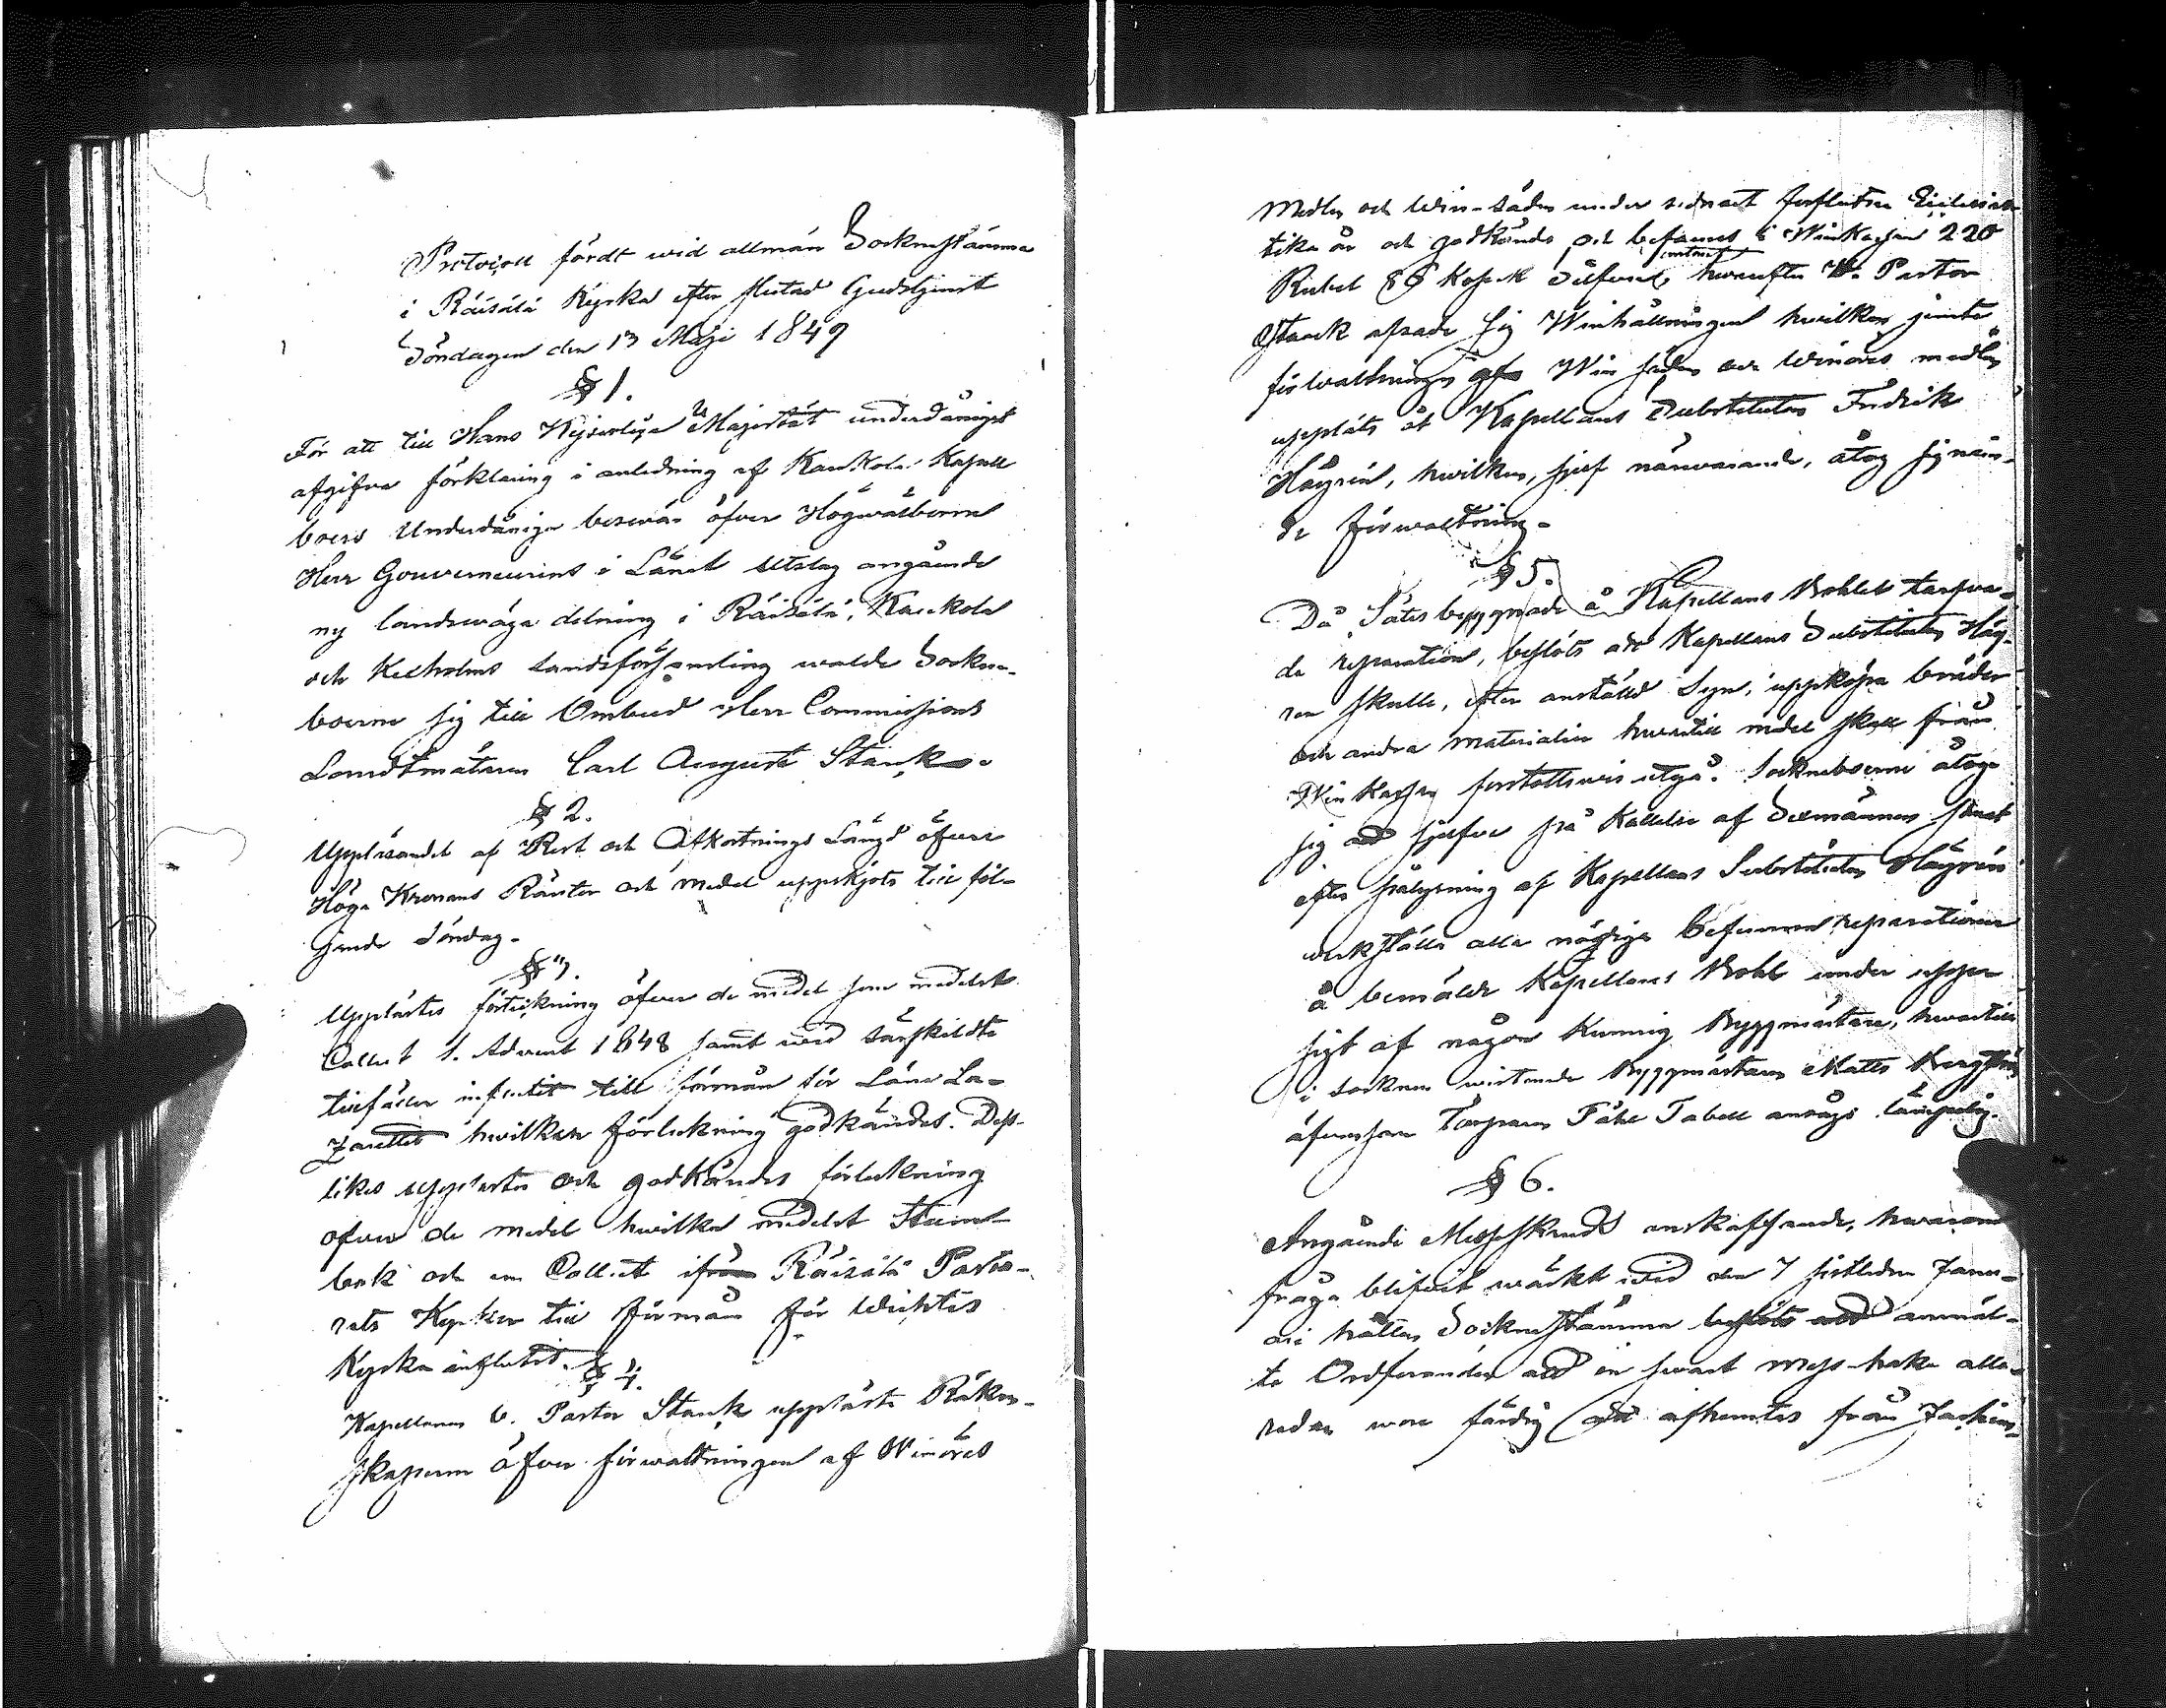 Protocoll fördt wid allmän Sockenstämma
i Räisälä Kyrka efter slutad Gudstjenst
Söndagen den 13 Maji 1849
§ 1.
För att till Hans Kejserliga Majestät underdånigst
afgifva förklaring i anledning af Kaukola Kapell
boers Underdåniga beswär öfver Högwälborne
Herr Gouverneurens i Länet Utslag angående
ny landswäga delning i Räisälä, Kaukola
och Kexholms Landsförsamling walde Sockne-
boerne sig till Ombud Herr Commissions
Landtmätaren Carl August Starck.
§ 2.
Uppläsandet af Rest och Afkortnings Längd öfver
Höga Kronans Räntor och medel uppskjöts till föl-
jande Söndag.
§ 3.
Upplästes förteckning öfver de medel som medelst
Collect 1. Advent 1848 samt wid särskildta
tillfällen influtit till förmån för Läns La-
zarettet hwilken förteckning godkändes. Dess-
likes upplästes och godkändes förteckning
öfver de medel hwilka medelst Stam-
bok och en Collect ifrån Räisälä Pasto-
rats Kyrkor till förmån för Wichtis
Kyrka influtit.
§ 4.
Kapellanen V. Pastor Starck uppläste Räken-
skaperne öfver förwaltningen af Winöres
Medlen och Win-säden under sednast förflutne Ecclesias-
tika år och godkändes och befanns i WinKassan 220
Rubel 88 Kopek Silfver, hwarefter V. Pastor
Starck afsade sig Winhållningen hwilken jemte
förwaltningen af Win säden och Winöres medlen
uppläts åt Kapellans Substituten Fredrik
Häyrén, hwilken, sjelf närwarande, åtog sig näm-
de förwaltning.
§ 5.
Då Sätesbyggnaden å Kapellans Bohlet tarfva-
de reparation, beslöts att Kapellans Substituten Häy-
ren skulle, efter anställd Syn, uppköpa bräder
och andra materialier hwartill medel skall från
Win Kassan förskottswis utgå. Sockneboerne åtogo
sig att sjelfve på Kallelse af Sexmännen samt
efter pålysning af Kapellans Substituten Häyrén
werkställa alla nödiga befunna reparationer
å bemälde Kapellans Bohl under upp-
sigt af någon Kunnig Byggmästare, hwartill
i socknen wistande Byggmästaren Matts
äfvensom Torparen Tabell ansågs lämpelig.
§ 6.
Angående Messskruds anskaffande, hwarom
fråga blifvit wäckt wid den 7 sistleden Janu-
arii hållen Sockenstämma beslöts att anmäl-
te Ordföranden att en swart mess-hake alla-
redan wore färdig att afhemtas från